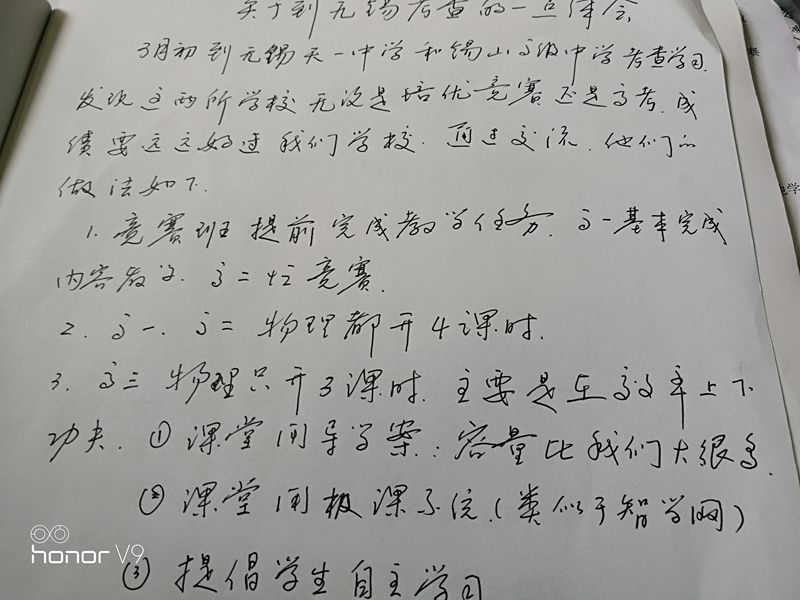 关于到无锡考查的一点体会
3月初到无锡天一中学和锡山高级中学考查学习.
发现这两所学校无论是培优竞赛还是高考.成
绩要远远好过我们学校.通过交流.他们的
做法如下.
1.竞赛班提前完成教学任务.高一基本完成
内容教学.高二忙竞赛.
2.高一.高二物理都开4课时.
3.高三物理只开3课时.主要是在效率上下
功夫.①课堂用导学案:容量比我们大很多.
②课堂用极课系统.(类似于智学网)
③提倡学生自主学习
honor V9